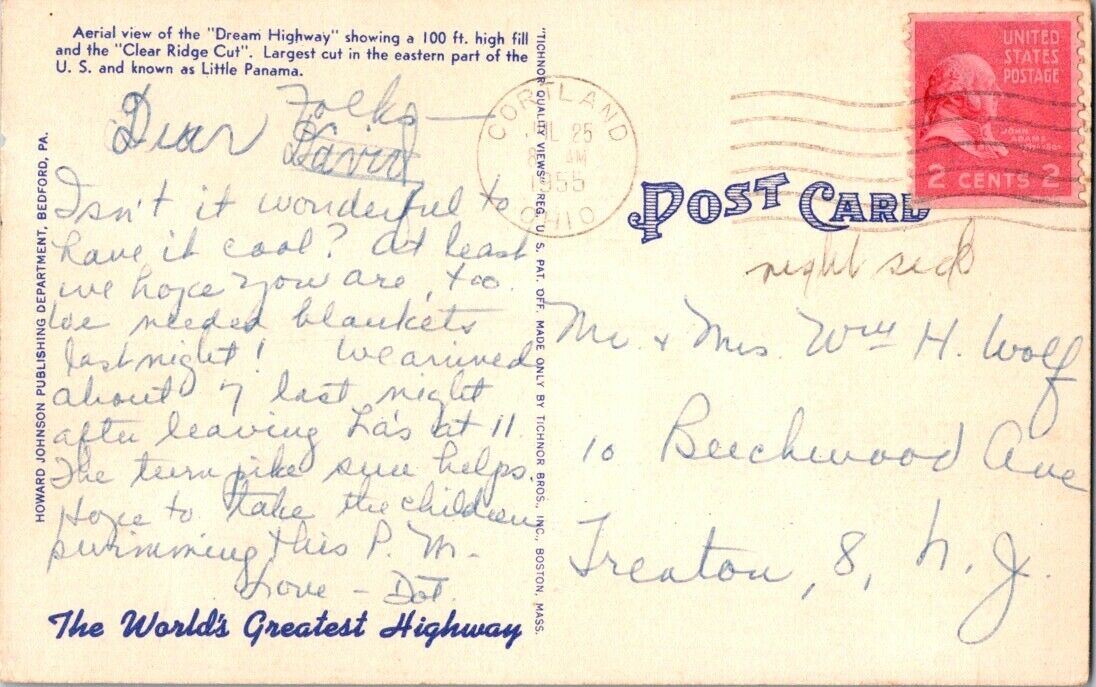 Aerial view of the "Dream Highway" showing a 100 ft. high fill
and the "Clear Ridge Cut". Largest cut in the eastern part of the
U. S. and known as Little Panama.
Dear Folks—
David
Isn't it wonderful to
have it cool? At least
we hope you are, too.
We needed blankets
last night! We arrived
about 7 last night
after leaving La's at 11.
The turnpike sure helps.
Hope to take the children
swimming this P. M.—
Love – Dot.
The World's Greatest Highway
HOWARD JOHNSON PUBLISHING DEPARTMENT, BEDFORD, PA.
"TICHNOR QUALITY VIEWS" REG. U. S. PAT. OFF. MADE ONLY BY TICHNOR BROS., INC., BOSTON, MASS.
CORTLAND
JUL 25
8 AM
1955
OHIO
UNITED
STATES
POSTAGE
JOHN
ADAMS
2 CENTS 2
POST CARD
right side
Mr. & Mrs. Wm H. Wolf
10 Beechwood Ave
Trenton, 8, N. J.